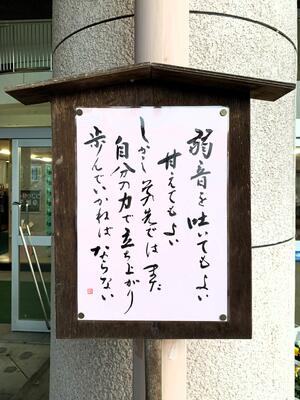 弱音を吐いてもよい
甘えてもよい
しかしその先ではまた
自分の力で立ち上がり
歩んでいかねばならない